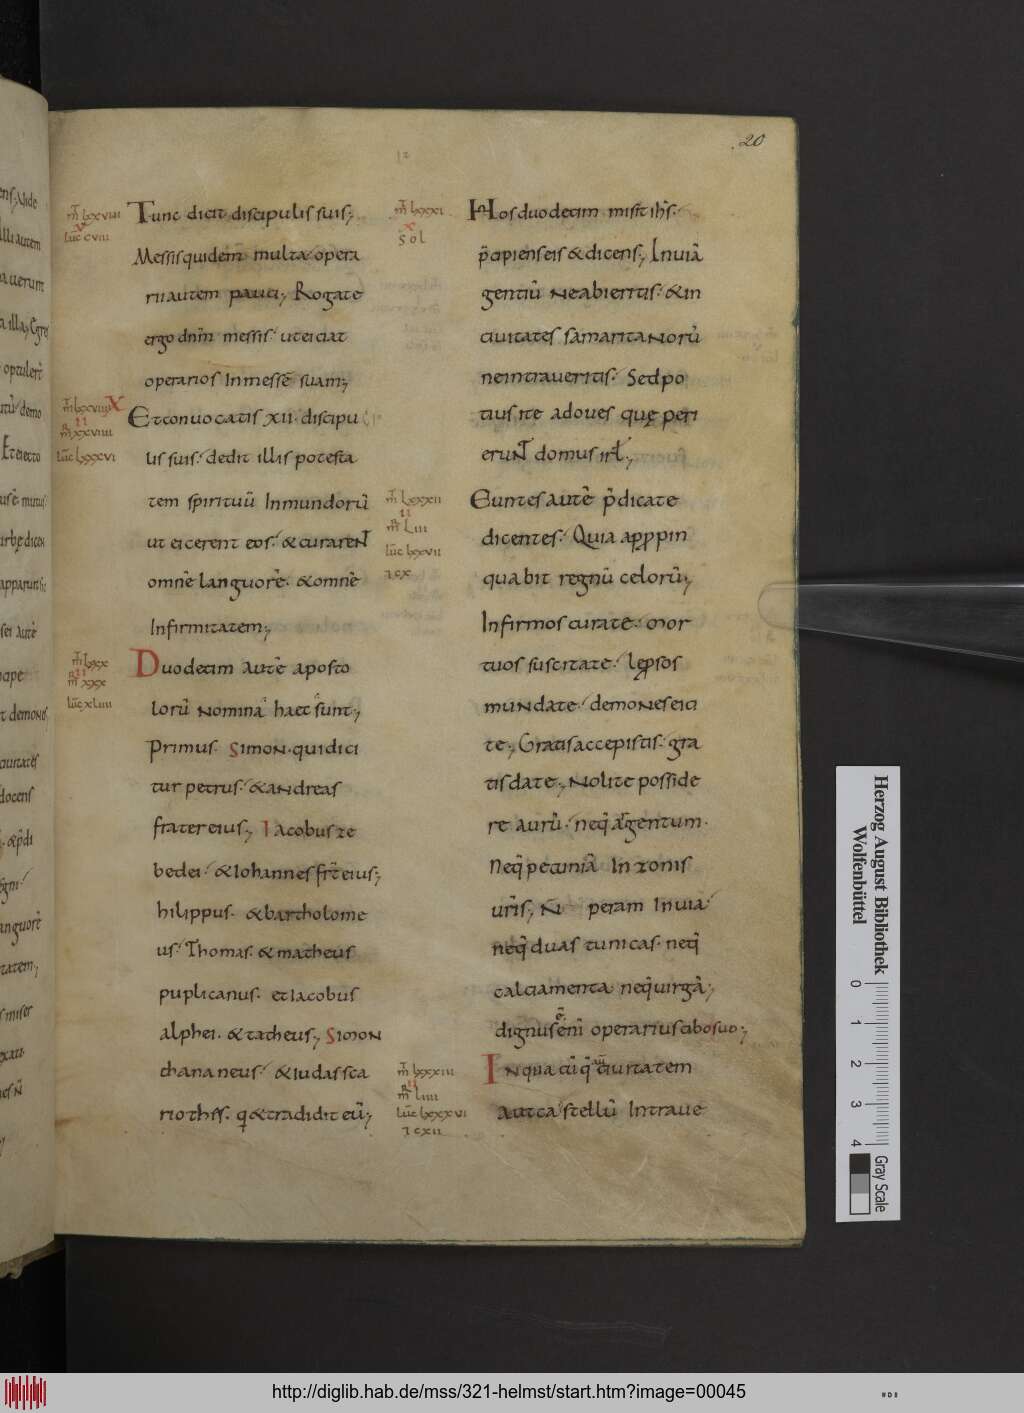 20
Tunc dicit discipulis suis;
Messis quidem̄ multa opera
rii autem pauci; Rogate
ergo dnm̄ messis. ut eiciat
operarios In messē suam;
Et conuocatis XII. discipu
lis suis. dedit illis potesta
tem spirituū Inmundorū
ut eicerent eos. & curarent
omnē languorē. & omnē
Infirmitatem;
Duodecim autē aposto
lorū nomina haec sunt;
Primus. Simon. qui dici
tur petrus. & andreas
frater eius; Iacobus ze
bedei. & Iohannes frt̄ eius;
hilippus. & bartholome
us. Thomas. & matheus
puplicanus. et Iacobus
alphei. & tatheus; Simon
chananeus. & Iudas sca
rioths. q & tradidit eū;
m̄ lxxviii
x
luc̄ cviii
m̄ lxxviiii X
ii
mr̄ xxviiii
luc̄ lxxxvi
m̄ lxxx
ii
mr̄ xxx
luc̄ xliiii
Hos duodecim misit ih̄s.
p̄cipiens eis & dicens; In uiā
gentiū ne abieritis. & in
ciuitates samaritanorū
ne intraueritis. Sed po
tius ite ad oues quę peri
erunt domus isrl̄;
Euntes autē p̄dicate
dicentes. Quia appropin
quabit regnū celorū;
Infirmos curate. mor
tuos suscitate. leprosos
mundate. demones eici
te; Gratis accepistis. gra
tis date; Nolite posside
re aurū. neq̄ argentum.
Neq̄ pecuniā In zonis
ur̄is; n̄ peram In uia
neq̄ duas tunicas. neq̄
calciamenta neq̄ uirgā;
dignus ē eni operarius cibo suo;
In quacūq̄ ciuitatem
Aut castellū Intraue
m̄ lxxxi
x
sol
m̄ lxxxii
ii
mr̄ liii
luc̄ lxxvii
ı cx
m̄ lxxxiii
ii
mr̄ liiii
luc̄ lxxxvi
ı cxii
Herzog August Bibliothek
Wolfenbüttel
0 1 2 3 4
Gray Scale
http://diglib.hab.de/mss/321-helmst/start.htm?image=00045